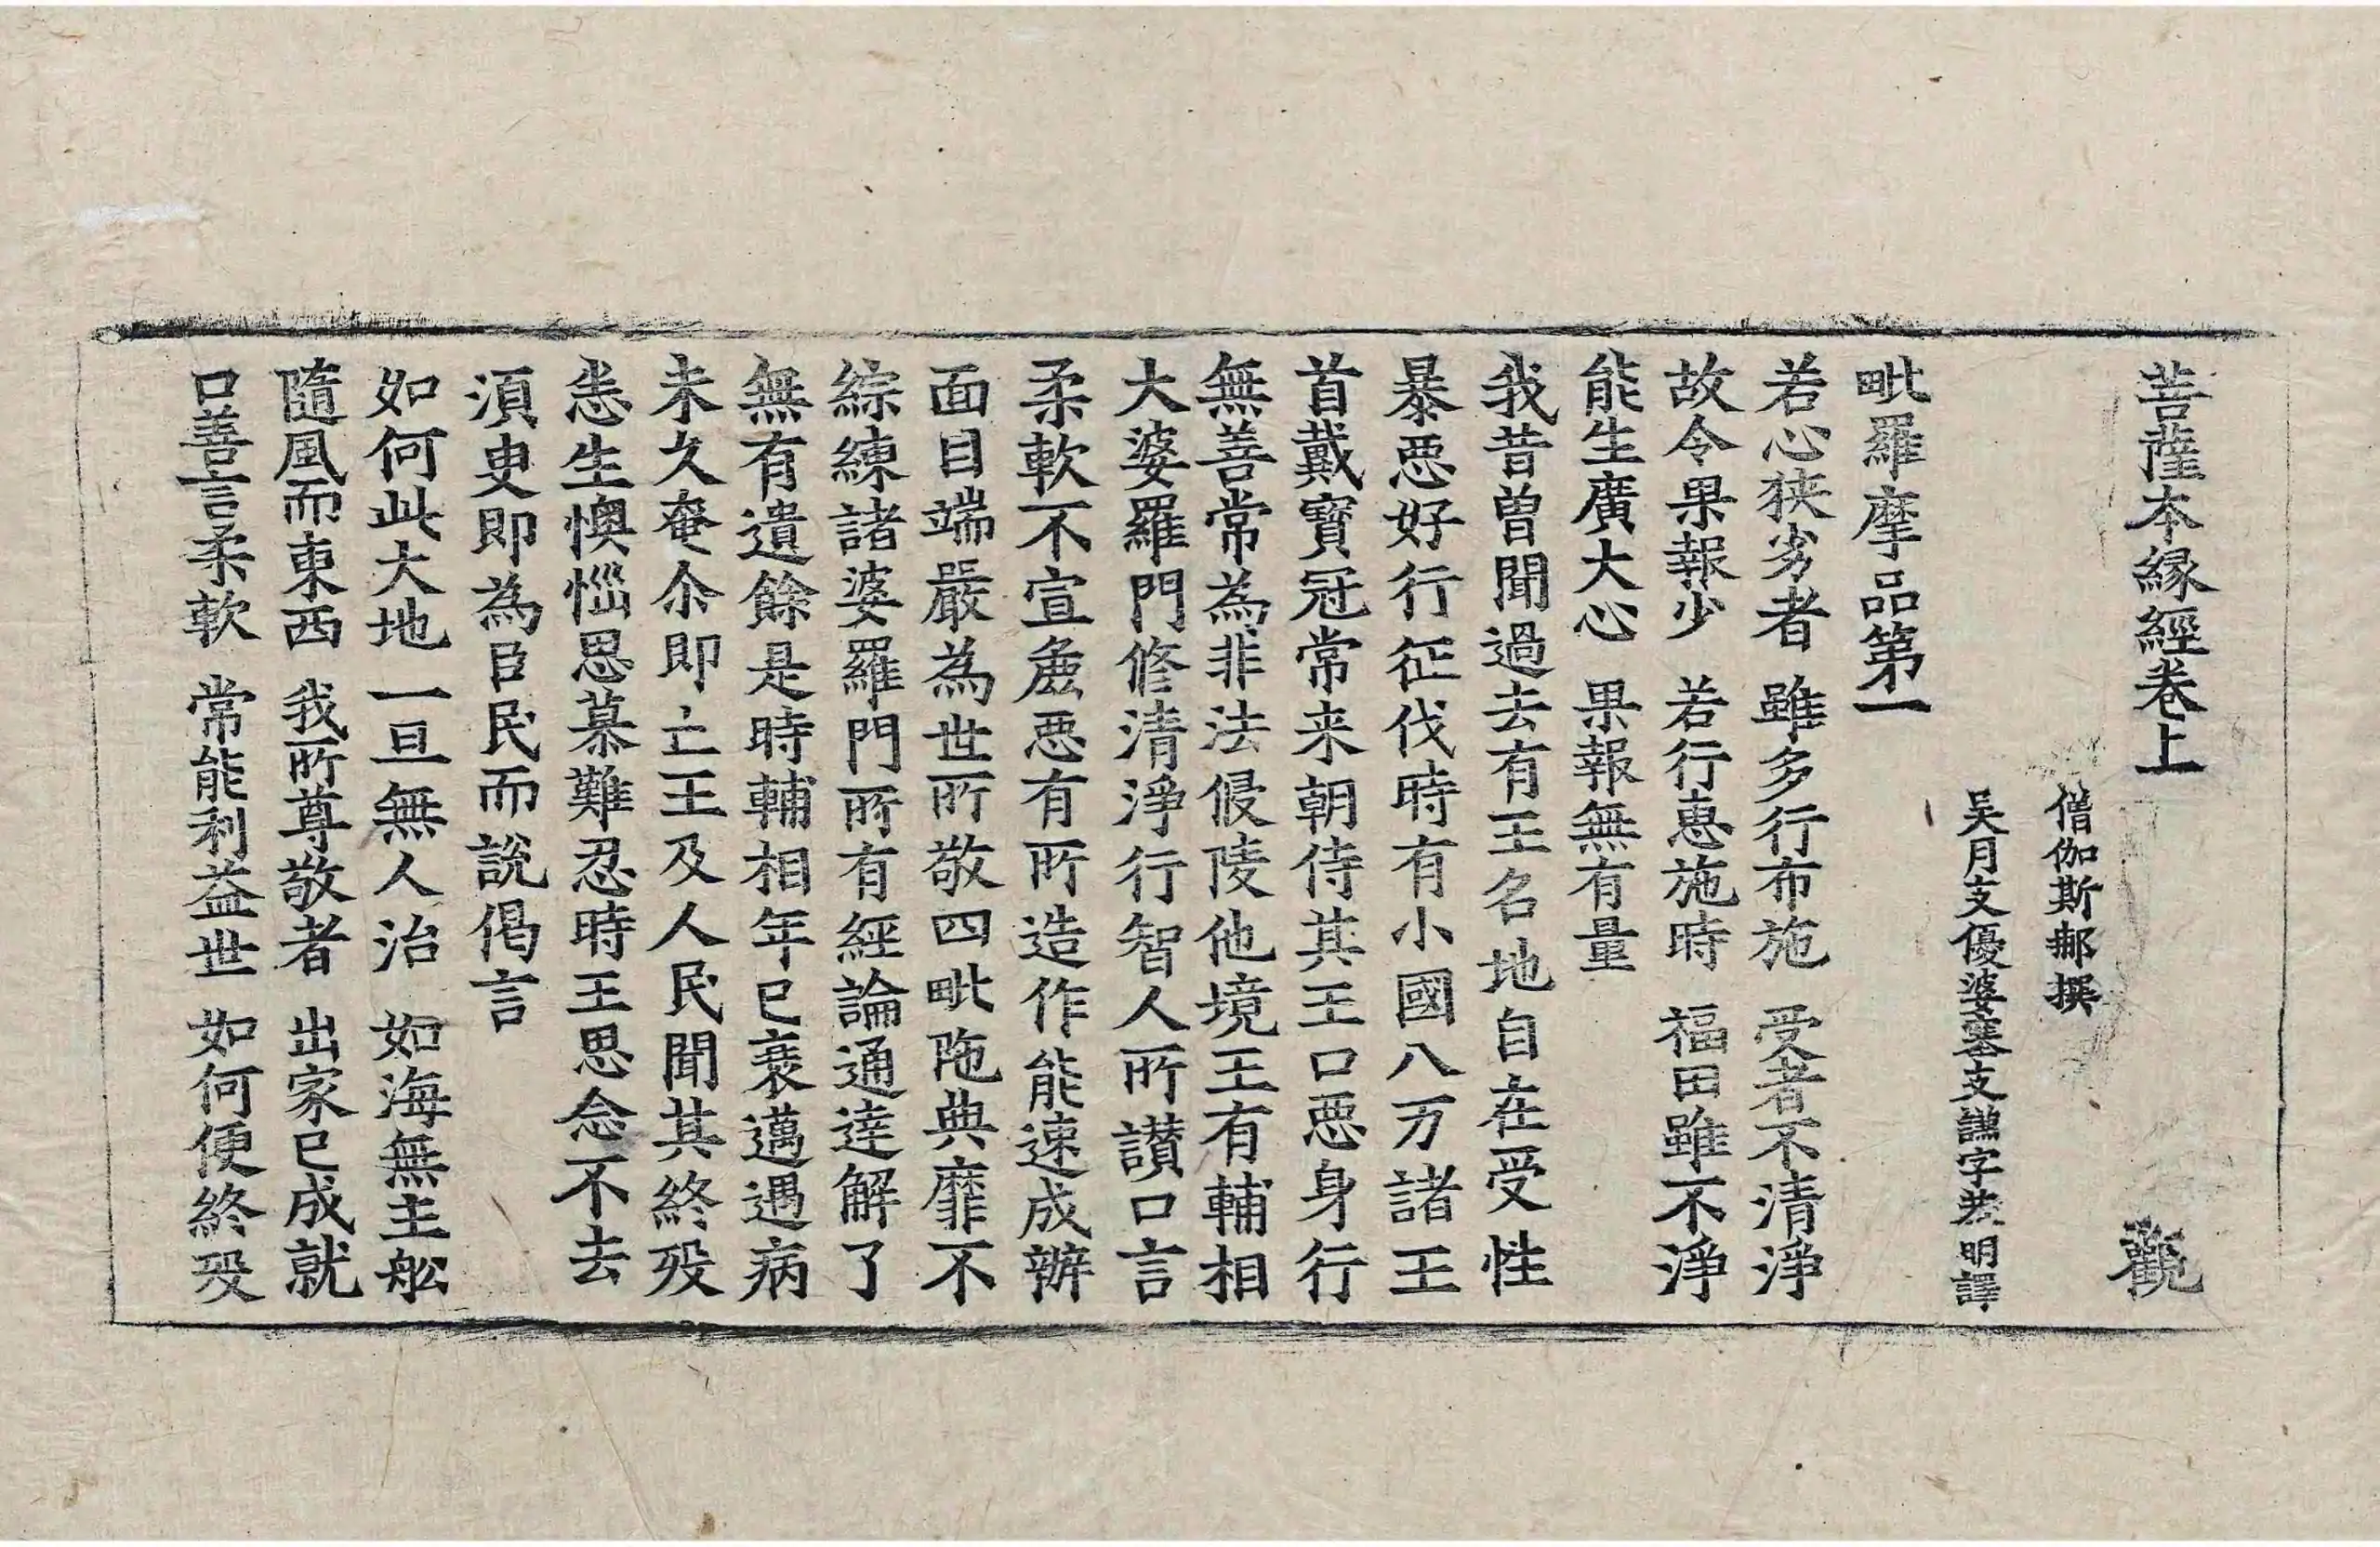 菩薩本縁經卷上 觀
僧伽斯那撰
吴月支優婆塞支謙字恭明譯
毗羅摩品第一
若心狹劣者 雖多行布施 受者不清淨
故令果報少 若行惠施時 福田雖不淨
能生廣大心 果報無有量
我昔曽聞過去有王名地自在受性
暴惡好行征伐時有小國八万諸王
首戴寶冠常来朝侍其王口惡身行
無善常為非法侵陵他境王有輔相
大婆羅門修清淨行智人所讃口言
柔軟不宣麁惡有所造作能速成辦
面目端嚴為世所敬四毗陁典靡不
綜練諸婆羅門所有經論通達解了
無有遺餘是時輔相年已衰邁遇病
未久奄尒即亡王及人民聞其終歿
恚生懊惱思慕難忍時王思念不去
須臾即為臣民而說偈言
如何此大地 一旦無人治 如海無主舩
隨風而東西 我所尊敬者 出家已成就
口善言柔軟 常能利益世 如何便終歿